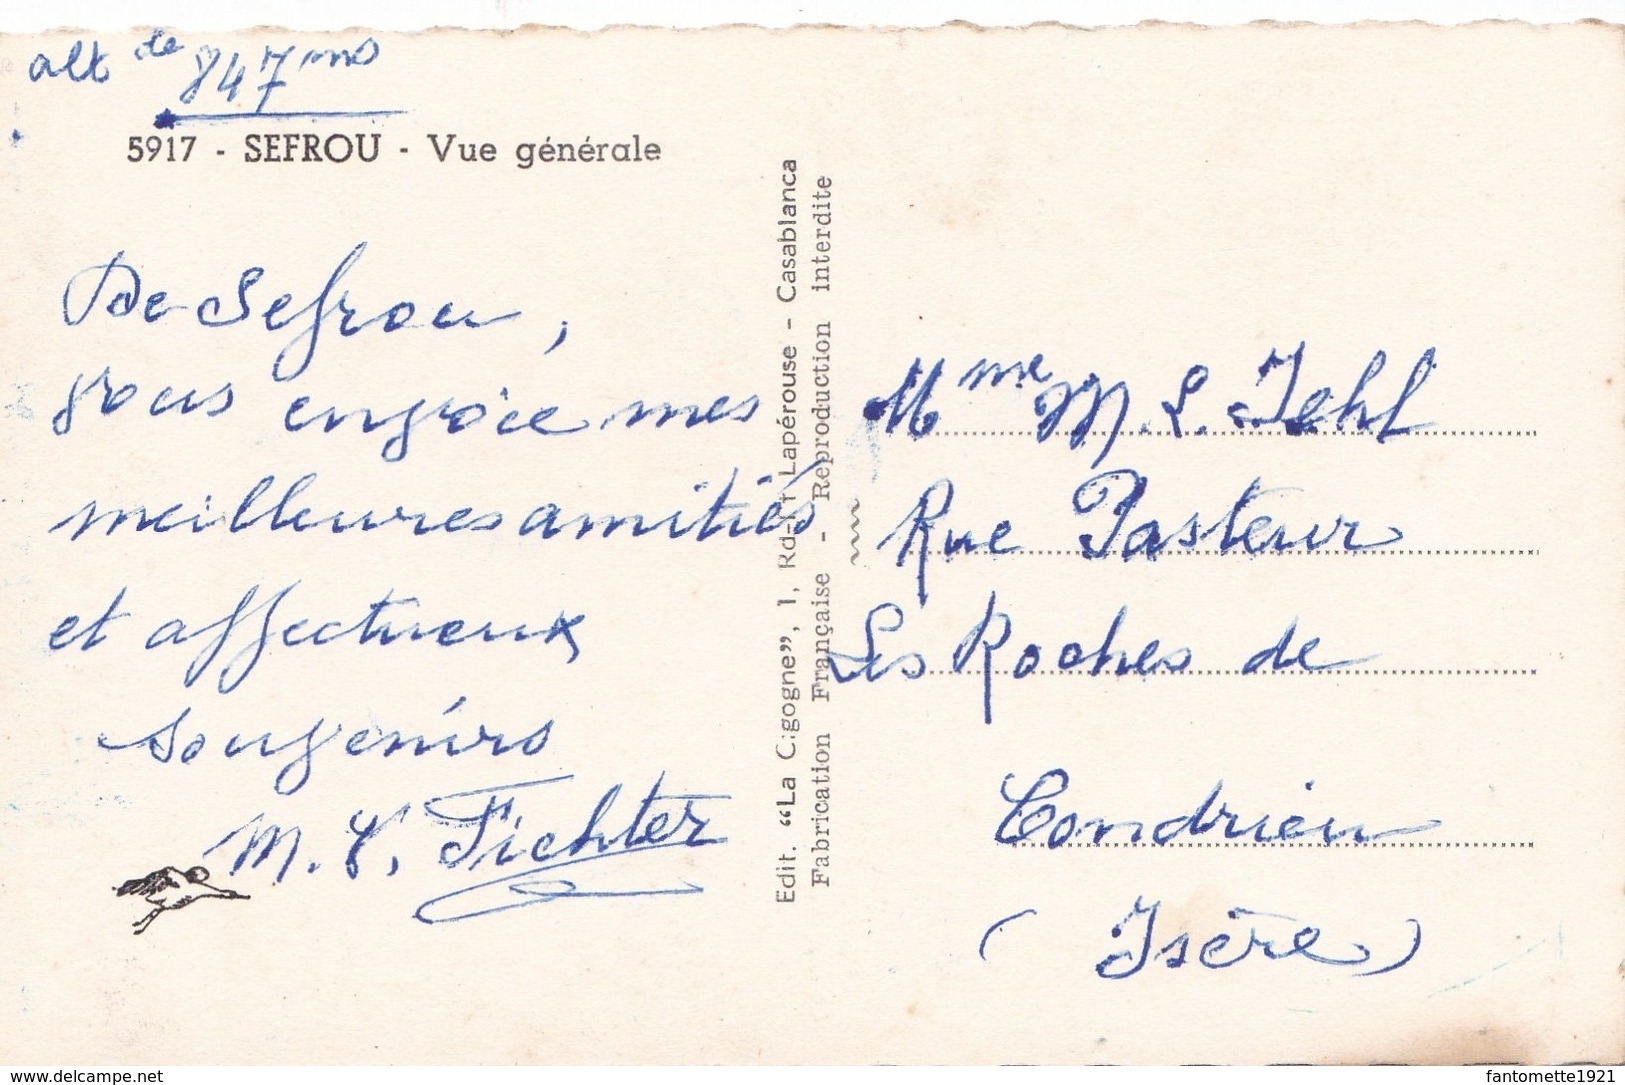 alt de 847 ms
5917 - SEFROU - Vue générale
De Sefrou,
vous envoie mes
meilleures amitiés
et affectueux
souvenirs
M. V. Fichter
Edit. “La Cigogne”, 1, Rd-Pt Lapérouse - Casablanca
Fabrication Française - Reproduction interdite
Mme M. L. Jehl
Rue Pasteur
Les Roches de
Condrieu
(Isère)
www.delcampe.net
fantomette1921